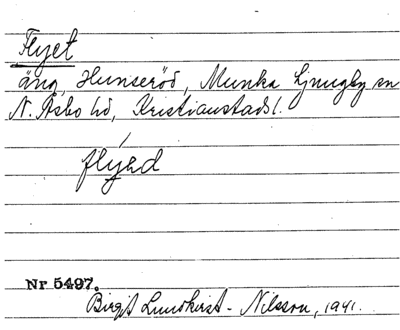 Flyet
äng, Hunseröd, Munka Ljungby sn
N. Åsbo hd, Kristianstads l.
flyəd
Nr 5497.
Birgit Lundkvist - Nilsson, 1941.